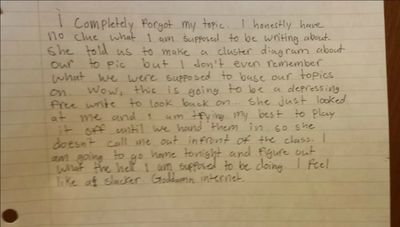 I completely forgot my topic. I honestly have
no clue what I am supposed to be writing about.
she told us to make a cluster diagram about
our topic but I don't even remember
what we were supposed to base our topics
on. Wow, this is going to be a depressing
free write to look back on... she just looked
at me and I am trying my best to play
it off until we hand them in so she
doesn't call me out infront of the class. I
am going to go home tonight and figure out
what the hell I am supposed to be doing. I feel
like a slacker. Goddamn internet.